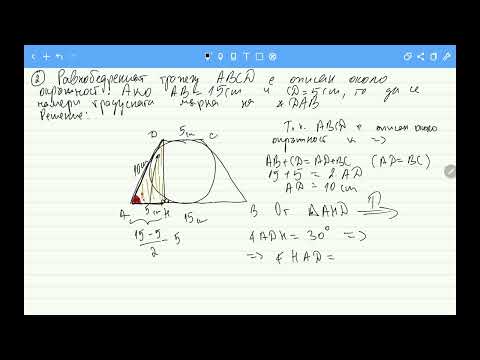 ② Равнобедреният трапец ABCD е описан около
окръжност. Ако AB = 15cm и CD = 5cm, то да се
намери градусната мярка на ∢ DAB
Решение:
D 5cm C
10cm
A 5cm H 15cm B
15 - 5
2
= 5
Т.к. ABCD е описан около
окръжност k =>
AB + CD = AD + BC (AD = BC)
15 + 5 = 2 AD
AD = 10 cm
От △AHD =>
∢ADH = 30° =>
=> ∢ HAD =